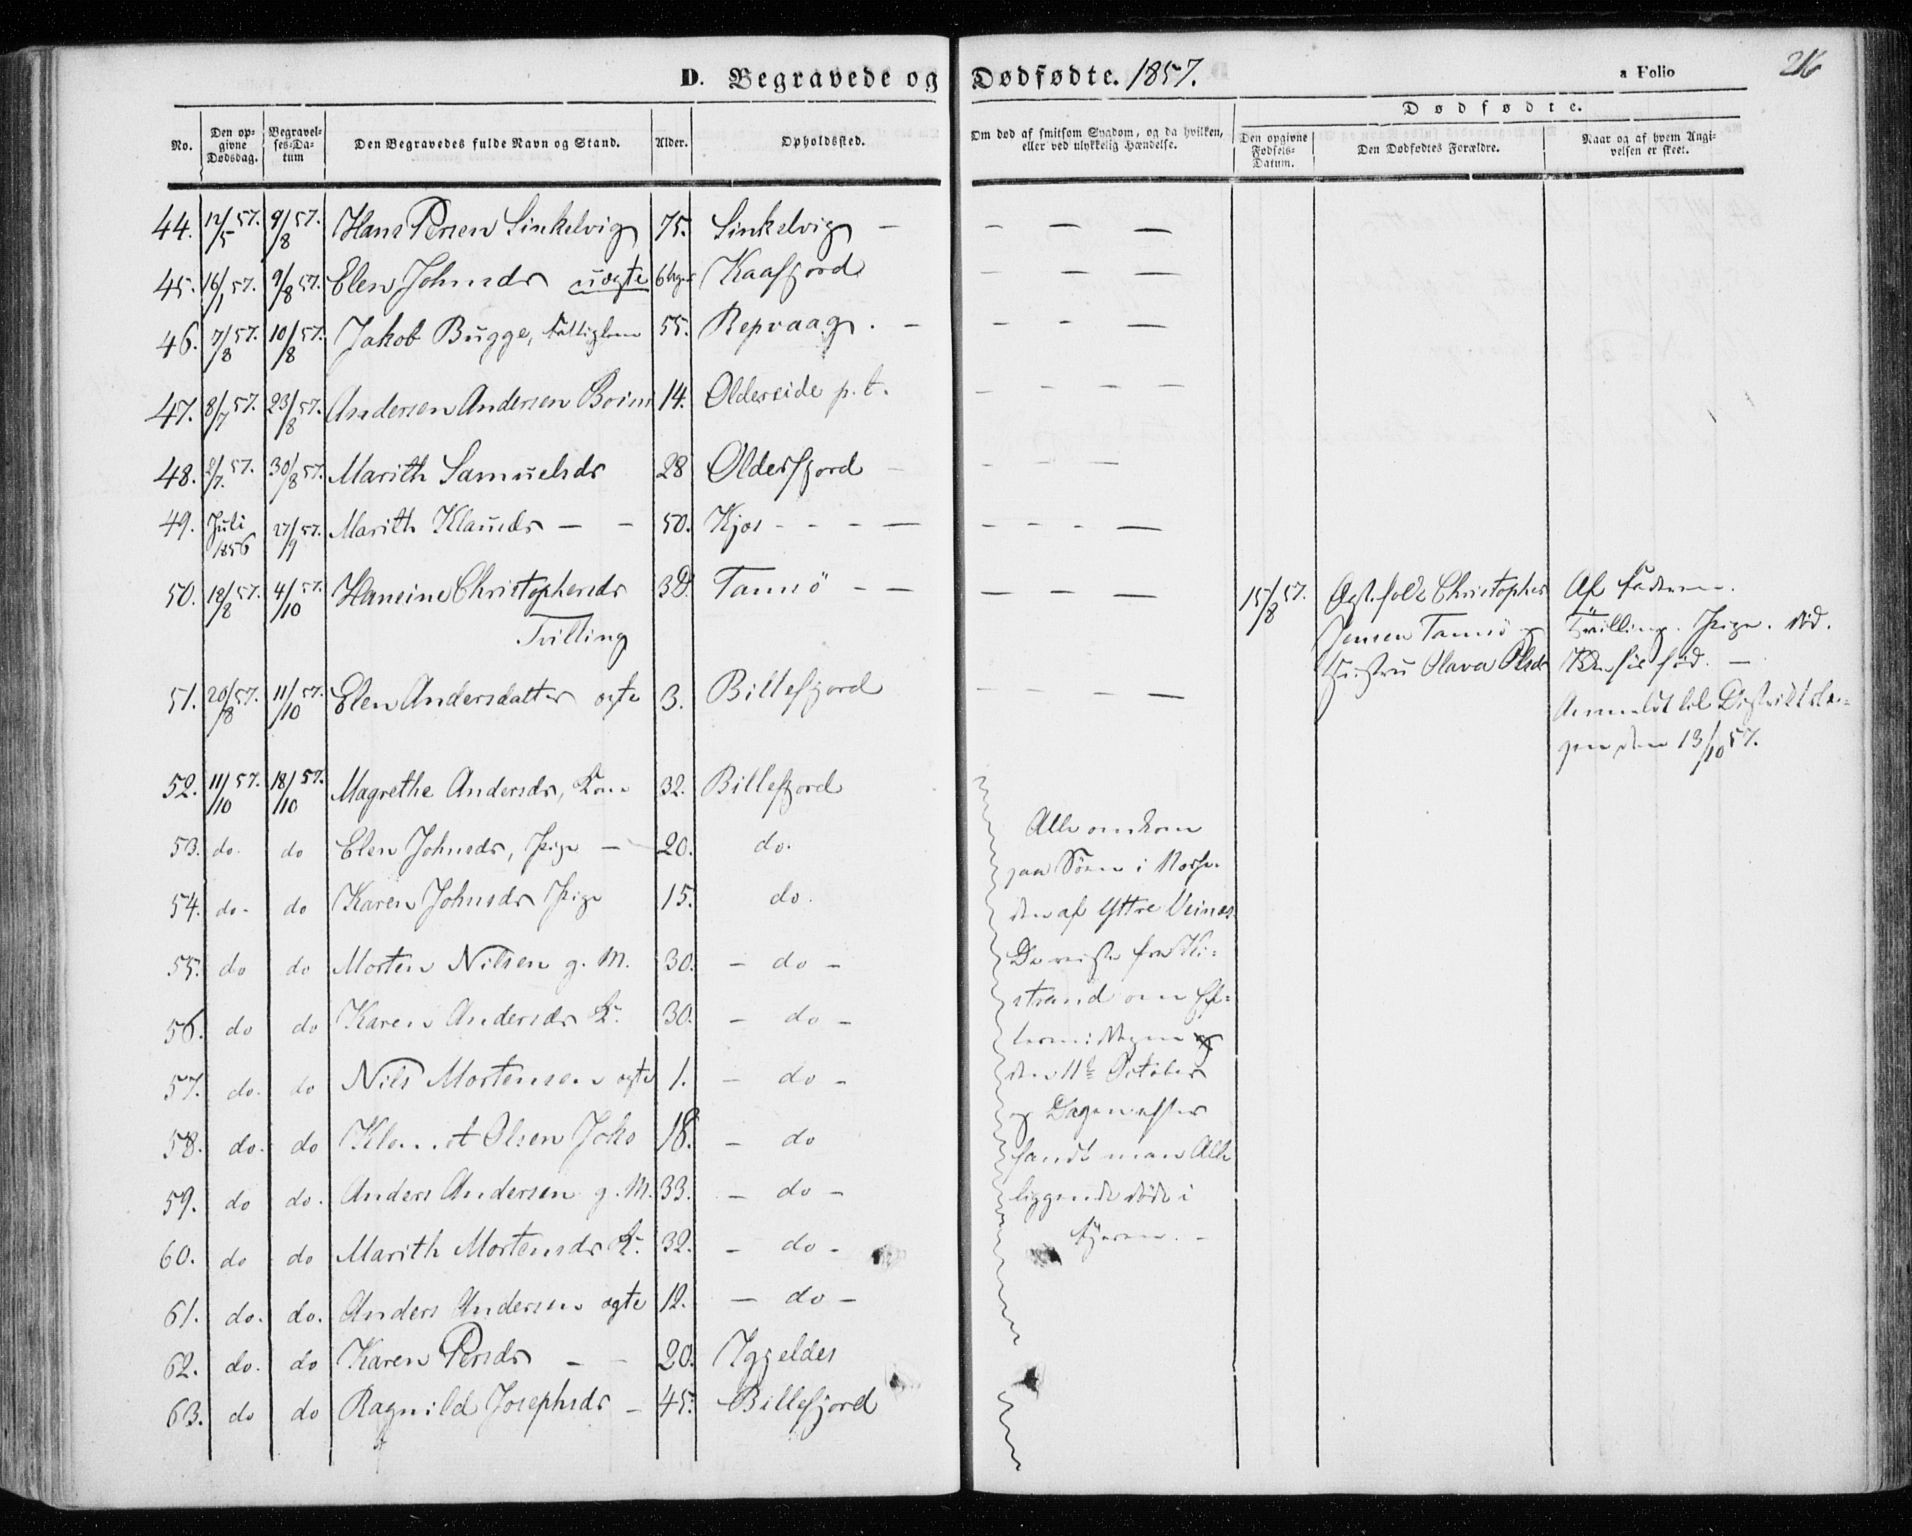 D. Begravede og Dødfødte. 1857.
a Folio 216
No. | Den opgivne Dødsdag. | Begravelses-Datum | Den Begravedes fulde Navn og Stand. | Alder. | Opholdssted. | Om død af smitsom Sygdom, og da hvilken, eller ved ulykkelig Hændelse. | Dødfødte. | Den opgivne Fødsels-Datum. | Den Dødfødtes Forældre. | Naar og af hvem Angivelsen er skeet.
44. 12/5 57. 9/8 57. Hans Persen Sinkelvig 75. Sinkelvig — – — —
45. 16/1 57. 9/8 57. Elen Johnsdr uægte Kaafjord – — —
46. 7/8 57. 10/8 57. Jakob Bugge, 55. Repvaag. – – – —
47. 8/7 57. 23/8 57. Andersen Andersen 14. Oldereide p. t. – – – –
48. 2/7. 57. 30/8 57. Marith Samuelsdr 28 Olderfjord – – — —
49. Juli 1856 27/9 57. Marith Klausdr – – 50. Kjos - - - — – – - —
50. 18/8 57. 4/10 57. Hansine Christophersdr Tamsö – — — – — —
Tvilling
15/8 57. Ægtefolk Christopher
Jensen Tamsö og
Hustru Olava Olsdr
Af Faderen –
Tvilling. Pige. død.
fød. —
Anmeldt til Distriktslæ-
gen den 13/10 57.
51. 20/8 57. 11/10 57. Elen Andersdatter ægte 3. Billefjord – – – —
52. 11/10 57. 18/10 57. Magrethe Andersdr, Kone 32. Billefjord
53. do. do Elen Johnsdr, Pige — 20. do.
54. do- do Karen Johnsdr Pige 15. do.
55. do do Morten Nilsen g. M. 30. – do –
56. do do Karen Andersdr K. 30. – do –
57. do. do Nils Mortensen ægte 1. – do –
58. do. do Olsen Joks 18. – do
59. do do. Anders Andersen g. M. 33. – do –
60. do do Marith Mortensdr K. 32. – do –
61. do. do. Anders Andersen ægte 12. — do –
62. do. do Karen Persdr – – 20. Igjeldes
63. do do Ragnild Josephsdr – 45. Billefjord
Alle omkom
paa Söen i Nærhe-
den af Yttre Veines
De reiste fra Ki-
strand om Ef-
termiddagen
den 11te October
og Dagen efter
fandt man Alle
liggende døde i
Fjæren. –